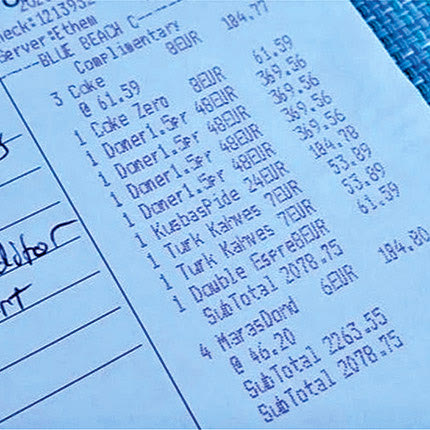 heck:1213932
Server:Ethem
-----BLUE BEACH C-----
Complimentary
3 Coke 8EUR 184.77
@ 61.59
1 Coke Zero 8EUR 61.59
1 Doner1.5pr 48EUR 369.56
1 Doner1.5pr 48EUR 369.56
1 Doner1.5pr 48EUR 369.56
1 Doner1.5pr 48EUR 369.56
1 KusbasPide 24EUR 184.78
1 Turk Kahves 7EUR 53.89
1 Turk Kahves 7EUR 53.89
1 Double Espre8EUR 61.59
SubTotal 2078.75
4 MarasDond 6EUR 184.80
@ 46.20
SubTotal 2263.55
SubTotal 2078.75